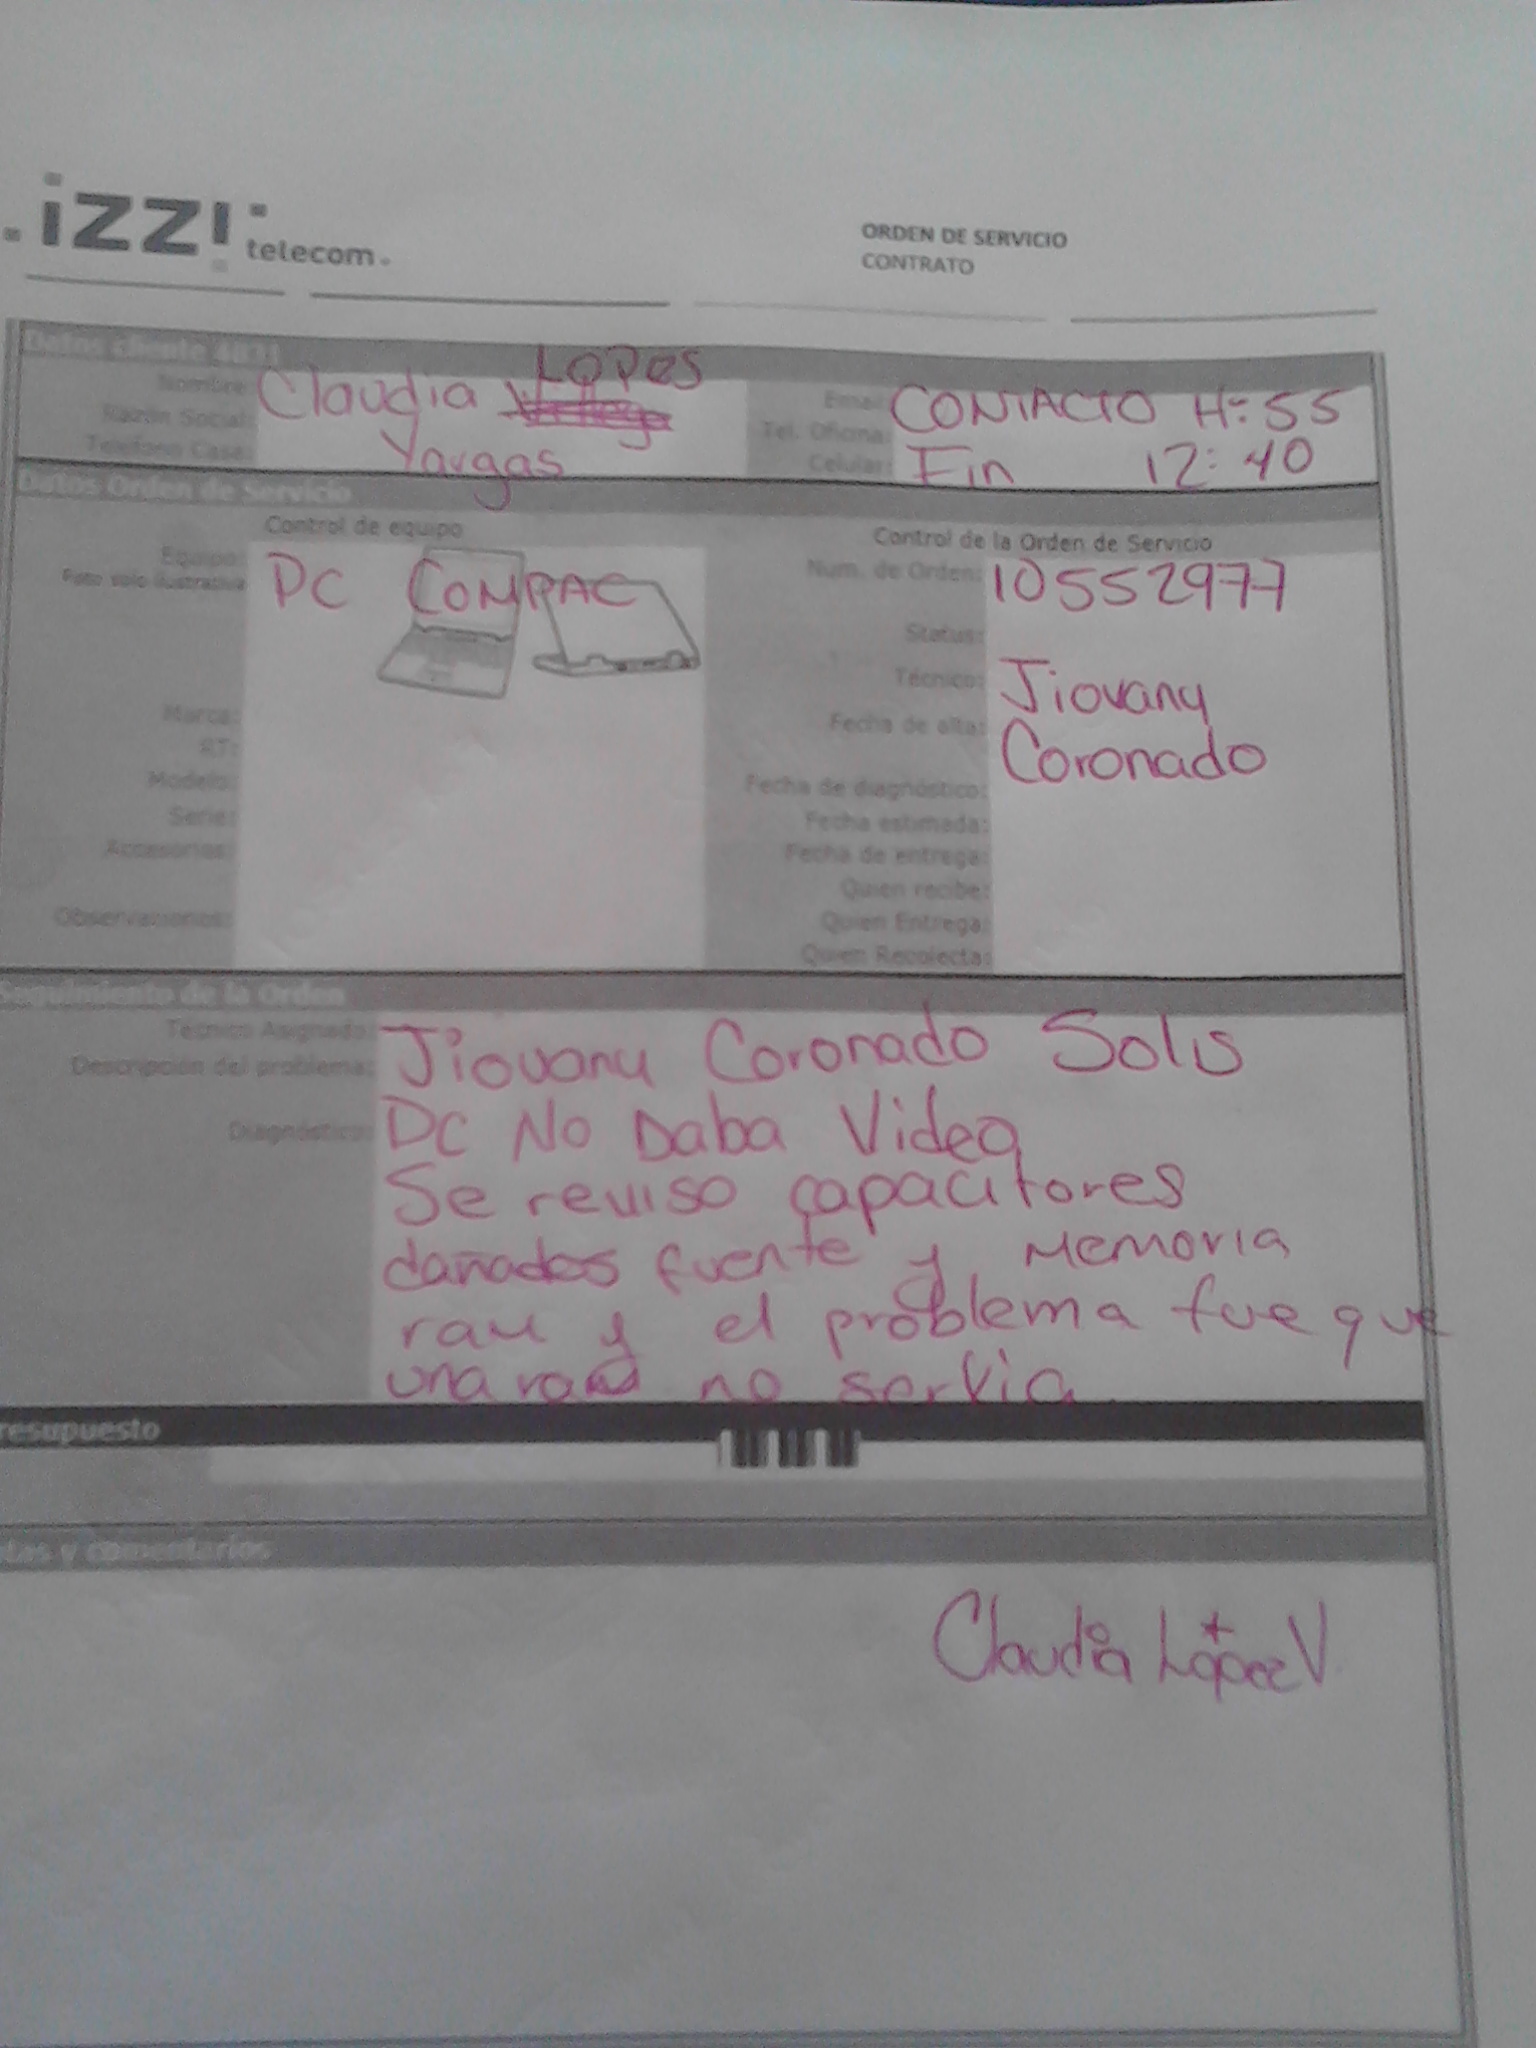 izzi telecom
ORDEN DE SERVICIO
CONTRATO
Datos cliente 4831
Nombre: Claudia Lopes
Razón Social:
Vargas
Teléfono Casa:
Email:
CONTACTO 11:55
Tel. Oficina:
Celular: Fin 12:40
Datos Orden de Servicio
Control de equipo
Equipo: PC COMPAC
Foto solo ilustrativa
Marca:
RT:
Modelo:
Serie:
Accesorios:
Observaciones:
Control de la Orden de Servicio
Num. de Orden: 10552977
Status:
Técnico: Jiovany
Fecha de alta: Coronado
Fecha de diagnóstico:
Fecha estimada:
Fecha de entrega:
Quien recibe:
Quien Entrega:
Quien Recolecta:
Seguimiento de la Orden
Técnico Asignado: Jiovany Coronado Solis
Descripción del problema:
Diagnóstico: PC No Daba Video
Se reviso capacitores
dañados fuente y Memoria
ram y el problema fue que
una ram no servia
resupuesto
tas y comentarios
Claudia López V